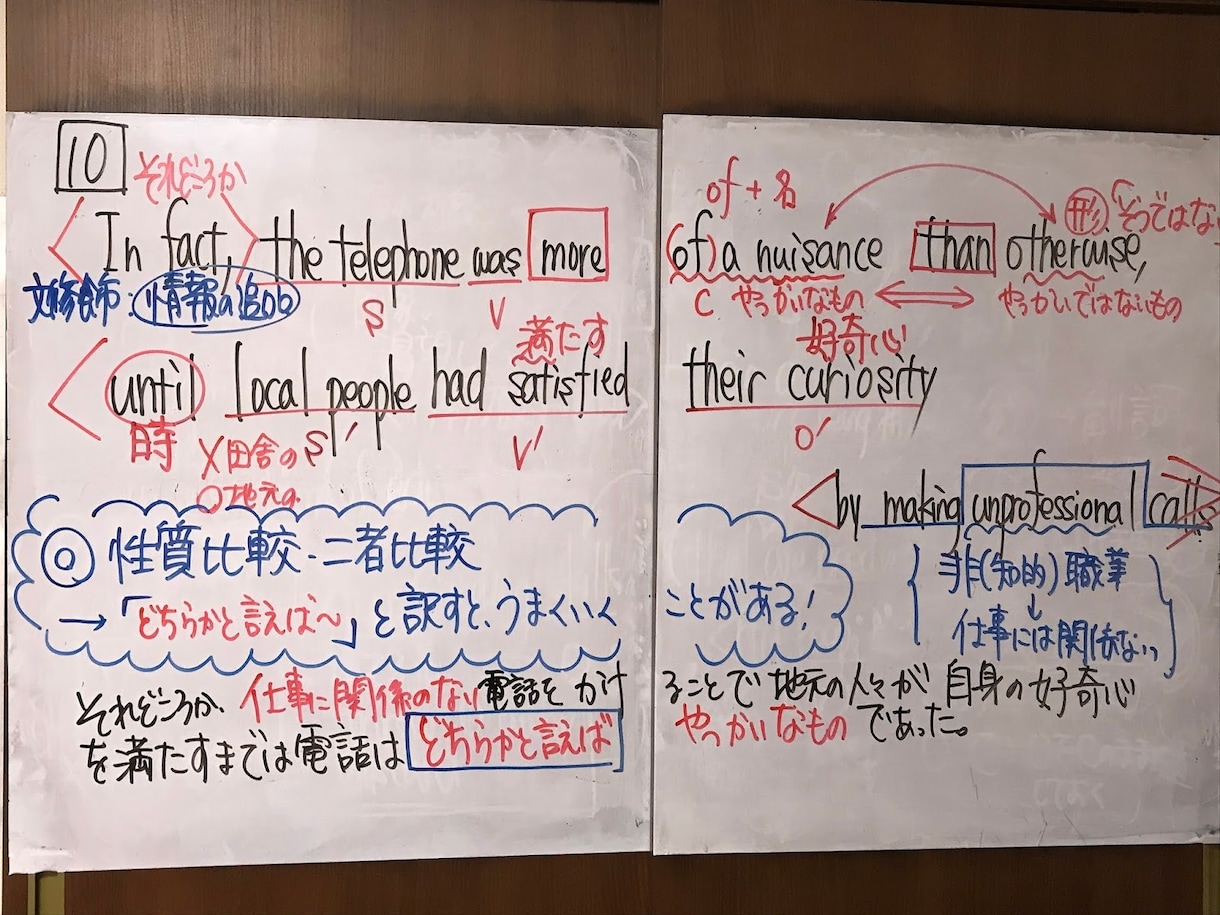 10
それどころか
of + 名
形 「そうではな
In fact, the telephone was more (of) a nuisance than otherwise,
文修飾 : 情報の追加
S V C やっかいなもの やっかいではないもの
満たす 好奇心
until local people had satisfied their curiosity
時 S' V' O'
×田舎の
○地元の
by making unprofessional calls
◎ 性質比較・二者比較
→「どちらかと言えば〜」と訳すと、うまくいくことがある!
非(知的)職業
↓
仕事には関係ない
それどころか、仕事に関係のない電話をかけることで地元の人々が自身の好奇心
を満たすまでは電話はどちらかと言えばやっかいなものであった。